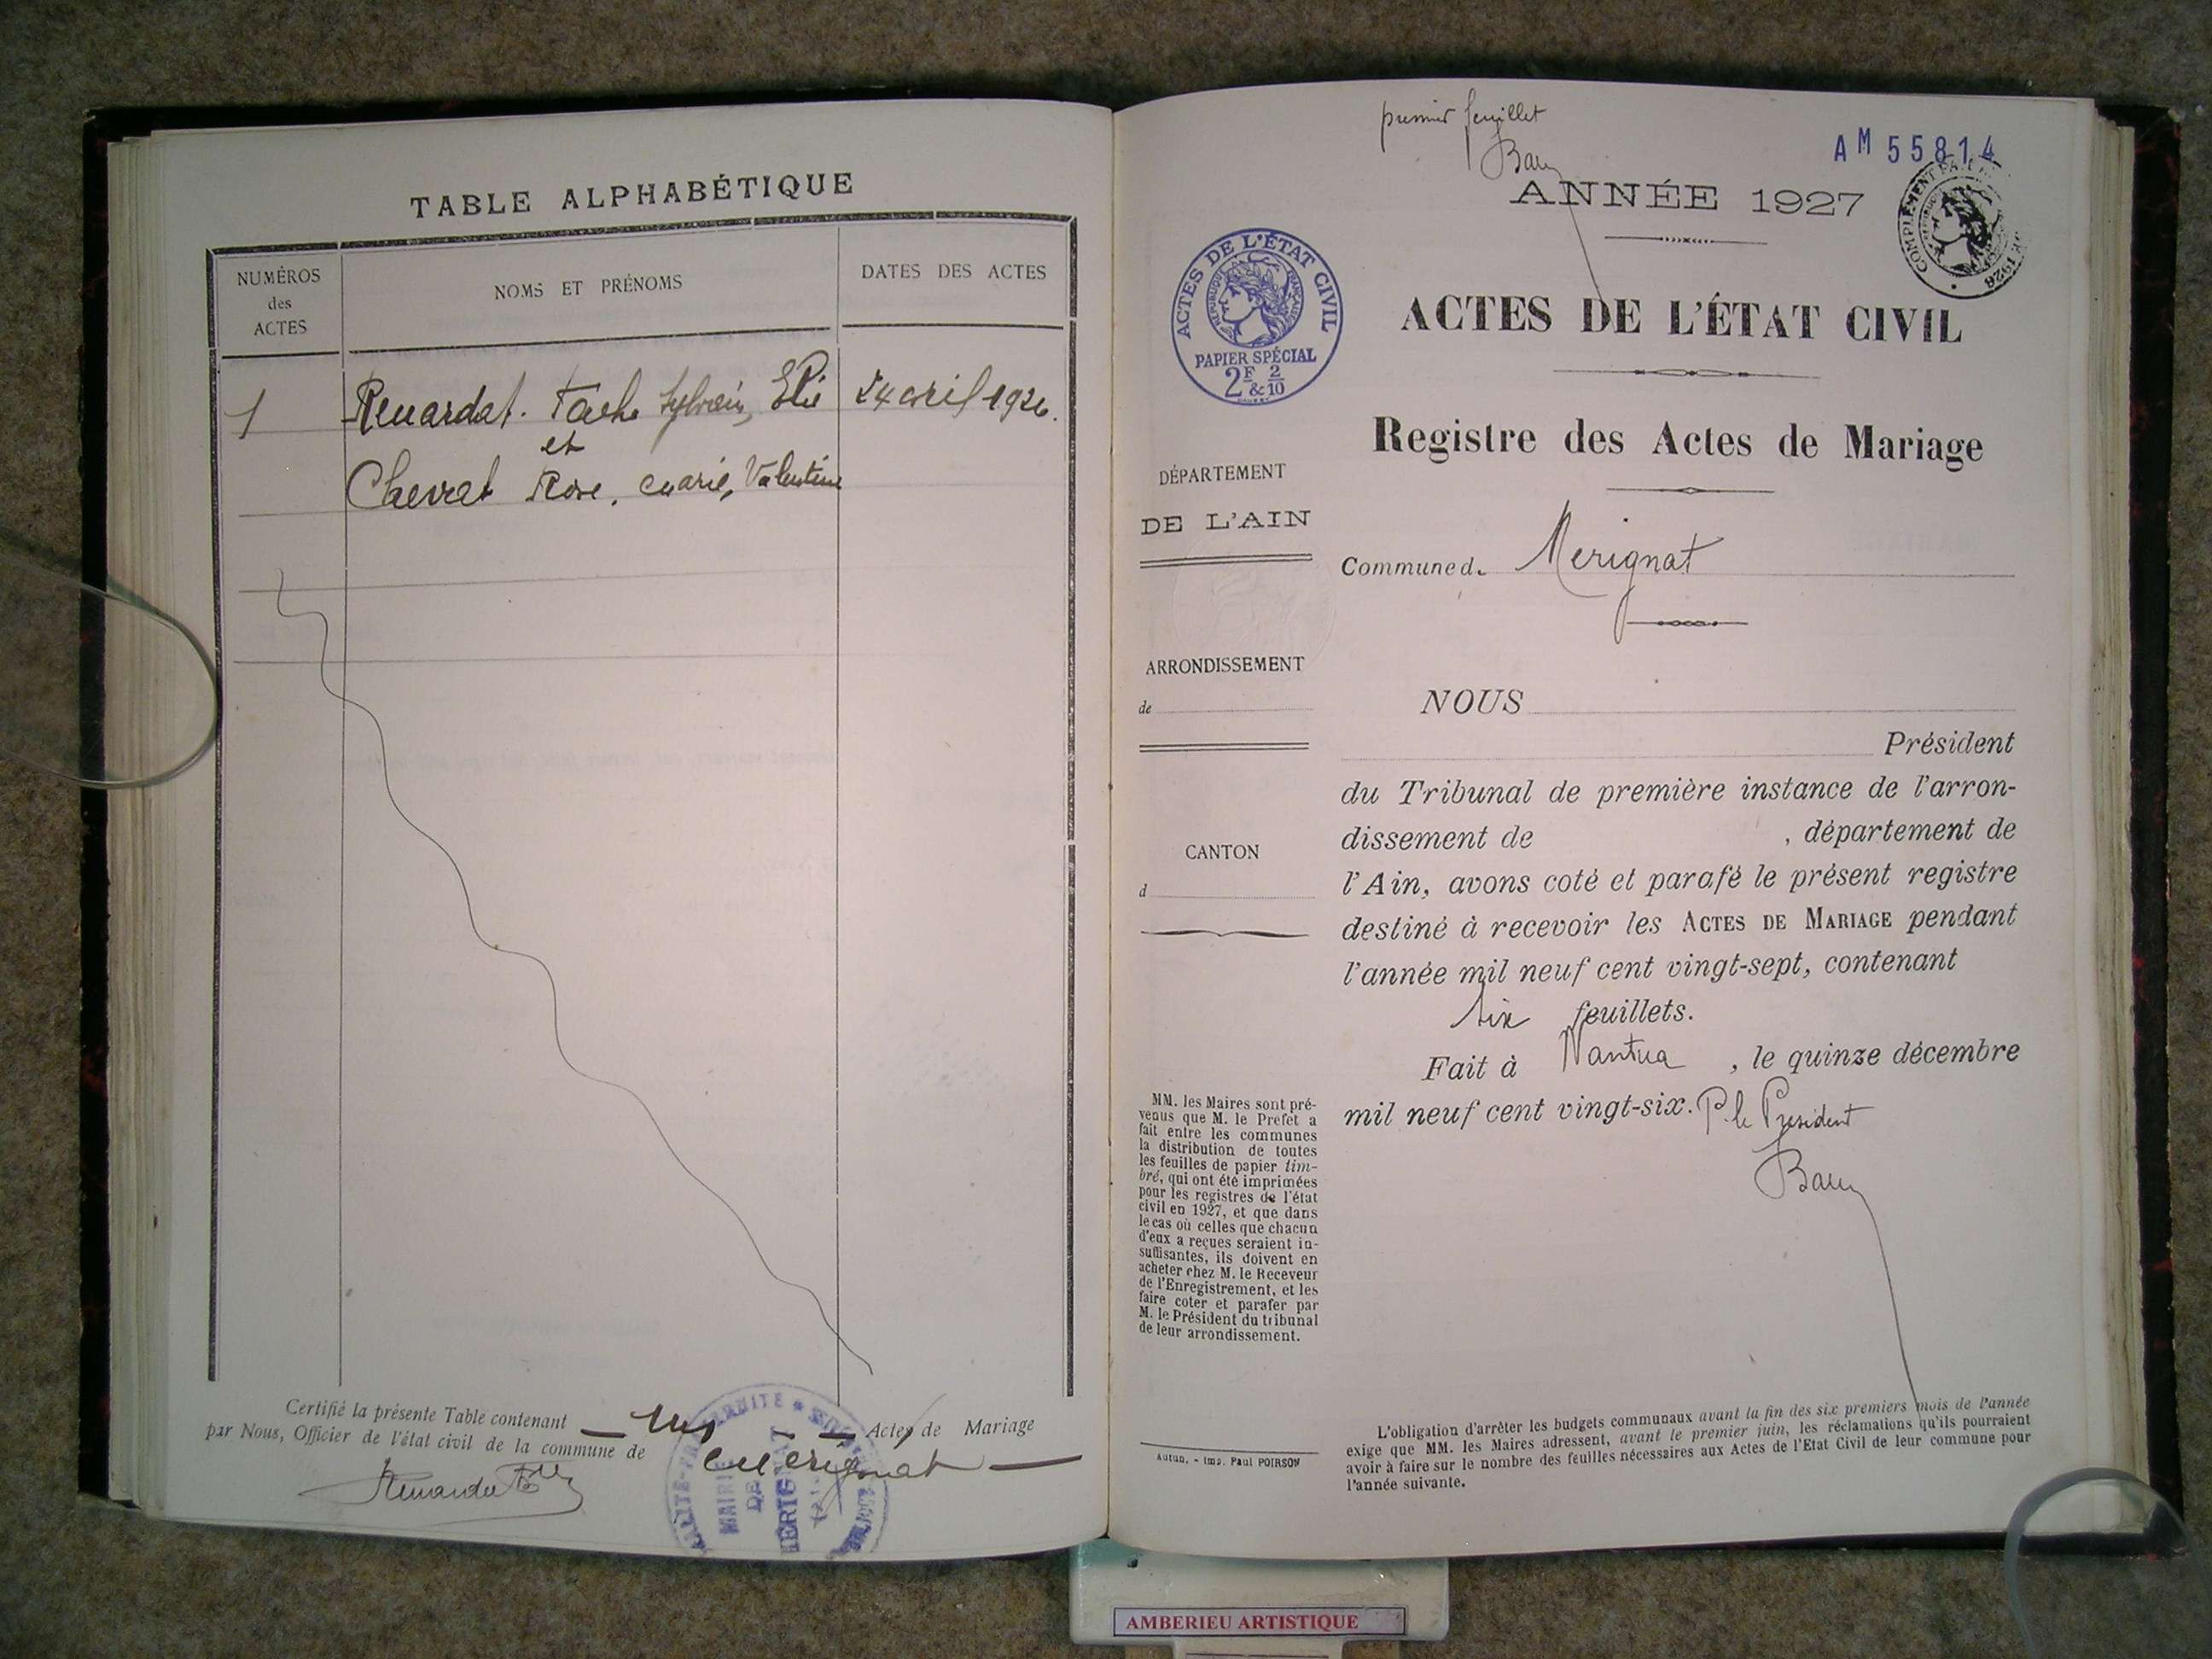 TABLE ALPHABÉTIQUE
NUMÉROS
des
ACTES
NOMS ET PRÉNOMS
DATES DES ACTES
1
Renardat. Tache Sylvain, Elie
24 avril 1926.
et
Chevrat Rose, Marie, Valentine
Certifié la présente Table contenant un Actes de Mariage
par Nous, Officier de l'état civil de la commune de Merignat
MAIRIE
DE
MÉRIGNAT
premier feuillet
AM 55814
ANNÉE 1927
ACTES DE L'ÉTAT CIVIL
RÉPUBLIQUE FRANÇAISE
PAPIER SPÉCIAL
2F & 2/10
ACTES DE L'ÉTAT CIVIL
Registre des Actes de Mariage
DÉPARTEMENT
DE L'AIN
Commune d. Merignat
ARRONDISSEMENT
de
CANTON
d
NOUS
Président
du Tribunal de première instance de l'arron-
dissement de , département de
l'Ain, avons coté et parafé le présent registre
destiné à recevoir les ACTES DE MARIAGE pendant
l'année mil neuf cent vingt-sept, contenant
six feuillets.
Fait à Nantua , le quinze décembre
mil neuf cent vingt-six. P. le President
MM. les Maires sont pré-
venus que M. le Prefet a
fait entre les communes
la distribution de toutes
les feuilles de papier tim-
bré, qui ont été imprimées
pour les registres de l'état
civil en 1927, et que dans
le cas où celles que chacun
d'eux a reçues seraient in-
suffisantes, ils doivent en
acheter chez M. le Receveur
de l'Enregistrement, et les
faire coter et parafer par
M. le Président du tribunal
de leur arrondissement.
Autun, - Imp. Paul POIRSON
L'obligation d'arrêter les budgets communaux avant la fin des six premiers mois de l'année
exige que MM. les Maires adressent, avant le premier juin, les réclamations qu'ils pourraient
avoir à faire sur le nombre des feuilles nécessaires aux Actes de l'Etat Civil de leur commune pour
l'année suivante.
AMBERIEU ARTISTIQUE